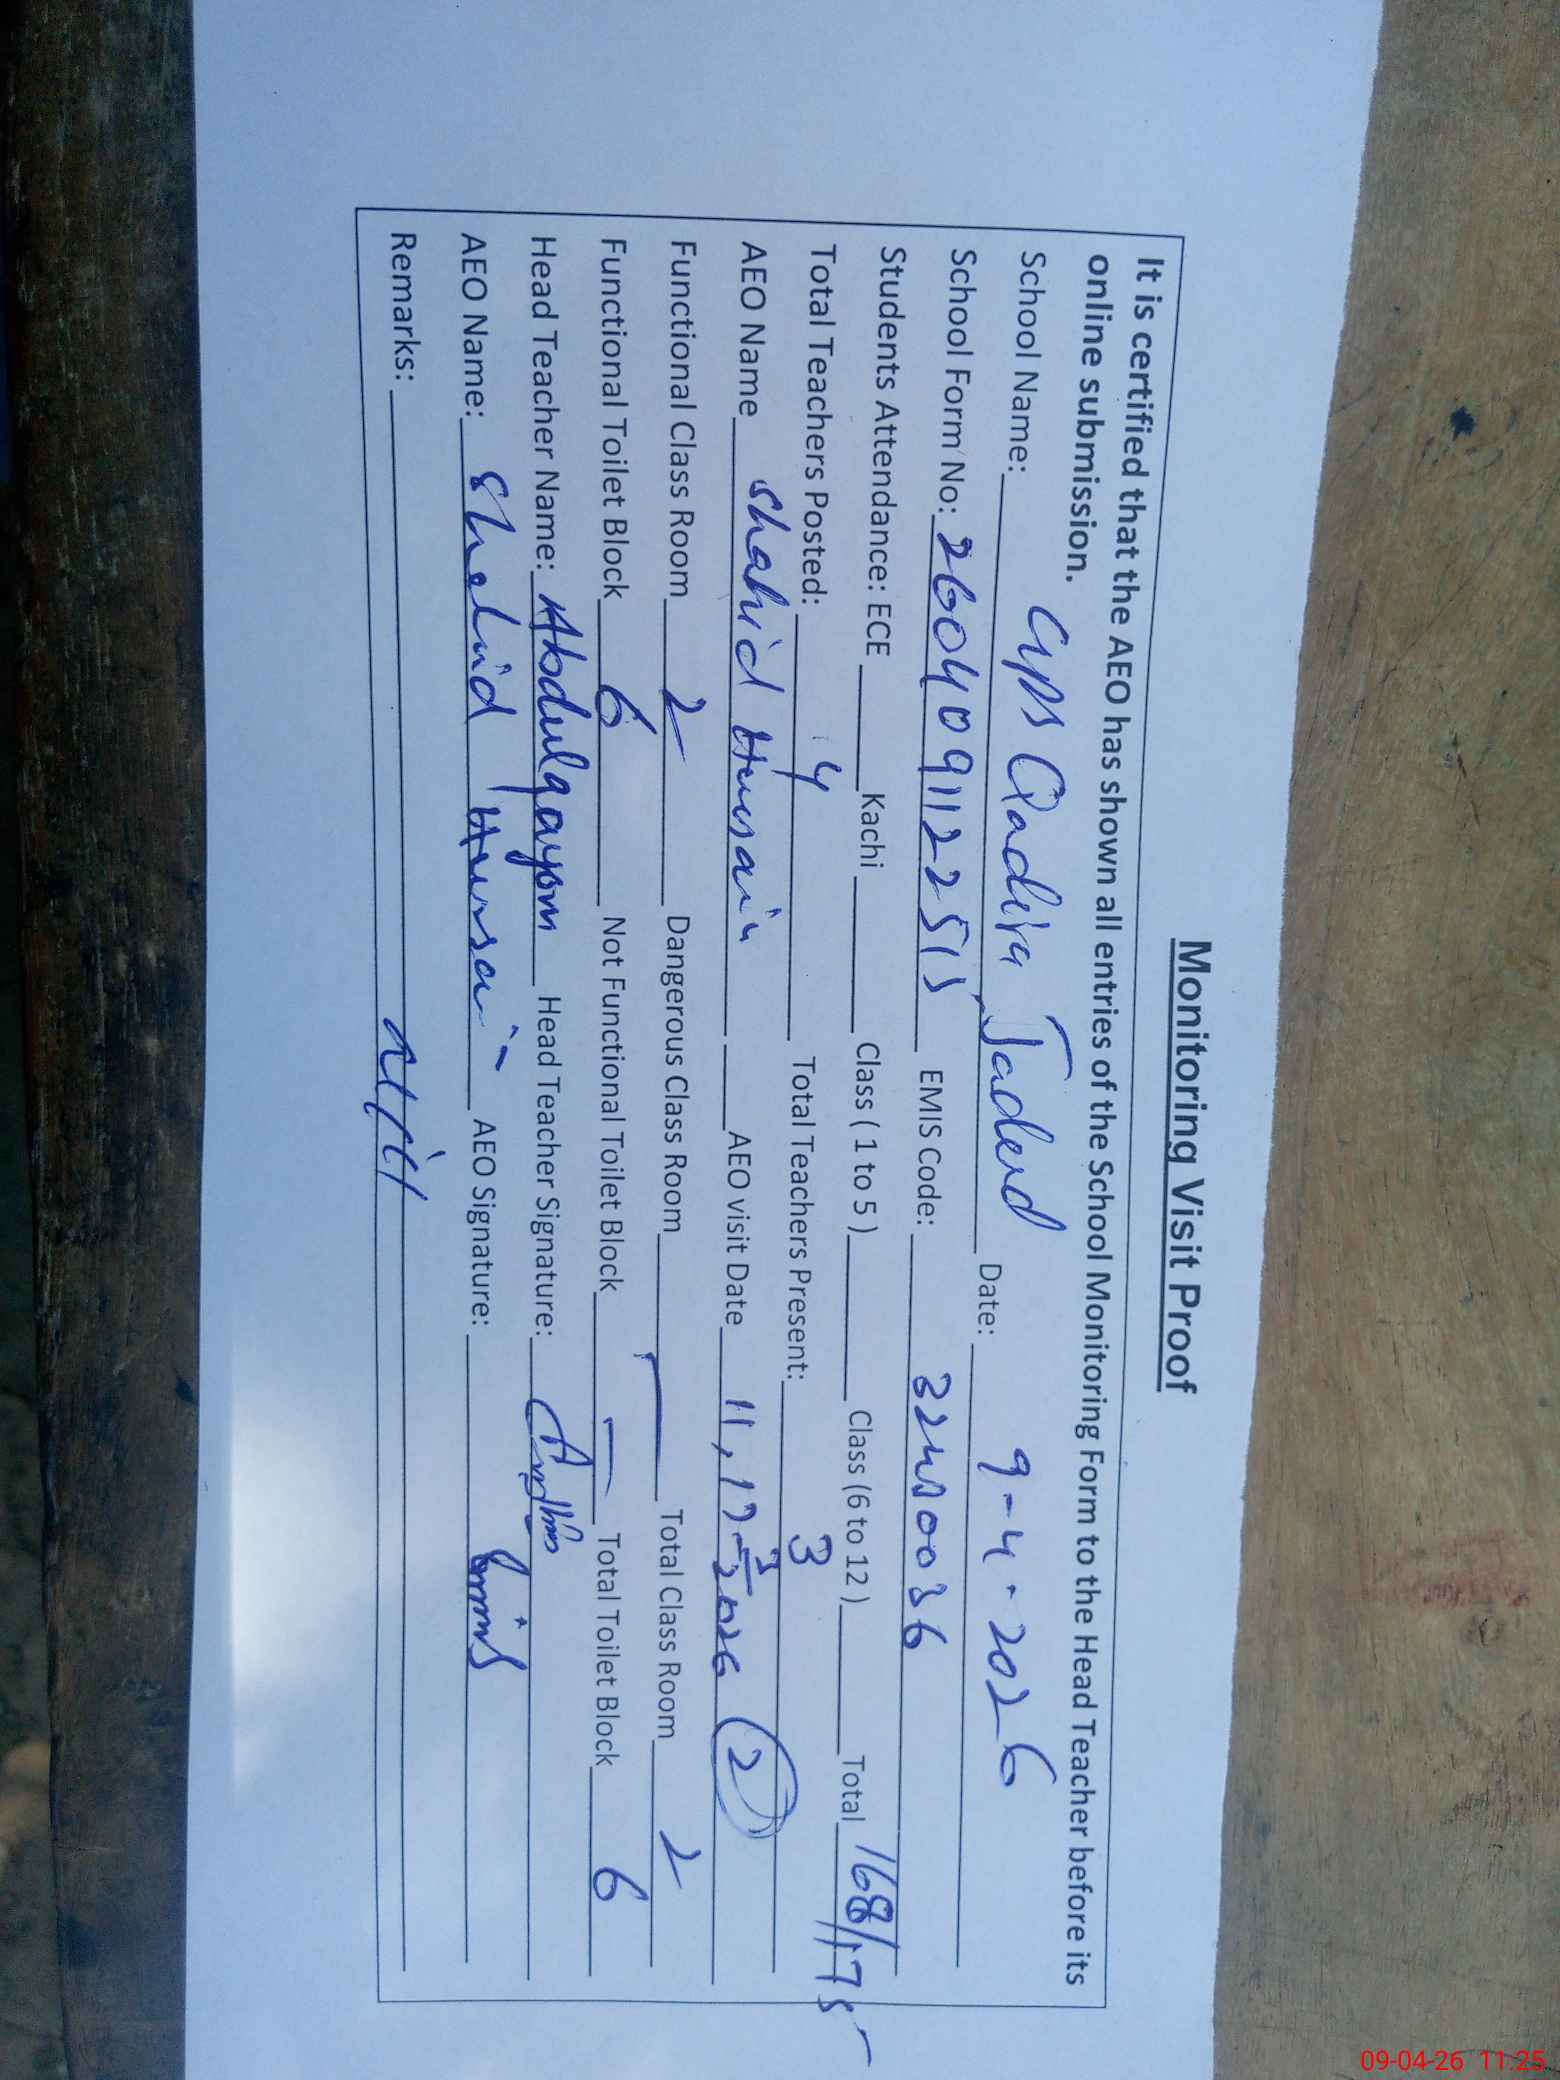 Monitoring Visit Proof
It is certified that the AEO has shown all entries of the School Monitoring Form to the Head Teacher before its
online submission.
School Name: GPS Qadira Jadeed Date: 9-4-2026
School Form No: 260409112251 EMIS Code: 32400036
Students Attendance: ECE Kachi Class ( 1 to 5 ) Class (6 to 12 ) Total 168/175
Total Teachers Posted: 4 Total Teachers Present: 3
AEO Name Shahid Hussain AEO visit Date 11, 17-3-2026 2
Functional Class Room 2 Dangerous Class Room — Total Class Room 2
Functional Toilet Block 6 Not Functional Toilet Block — Total Toilet Block 6
Head Teacher Name: Abdulqayom Head Teacher Signature:
AEO Name: Shahid Hussain AEO Signature:
Remarks:
09-04-26 11:25